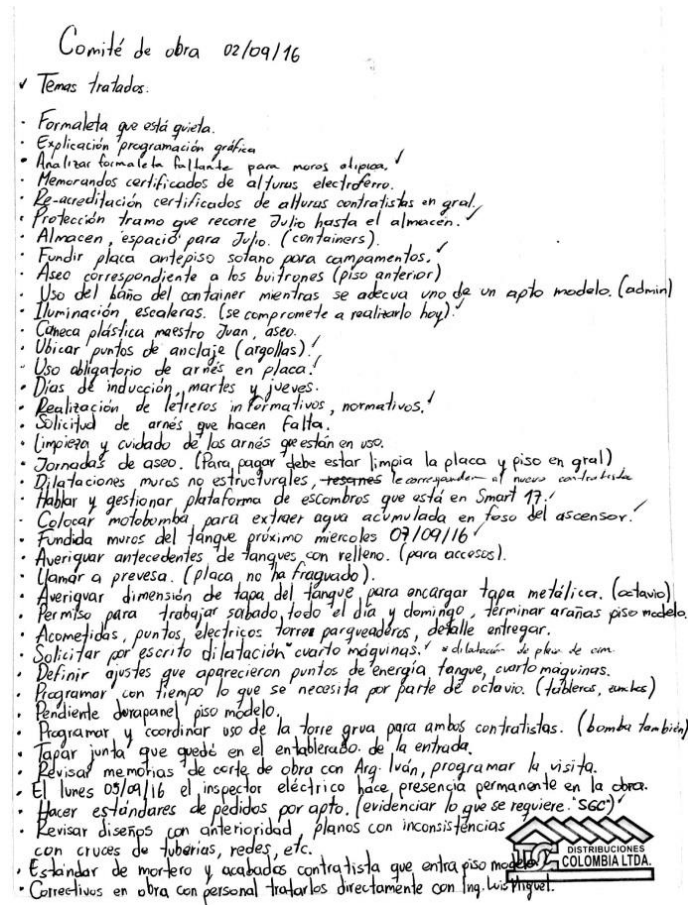 Comité de obra 02/09/16
✓ Temas tratados:
· Formaleta que está quieta.
· Explicación programación gráfica
· Analizar formaleta faltante para muros atipica. ✓
· Memorandos certificados de alturas electroferro.
· Re-acreditación certificados de alturas contratistas en gral. ✓
· Protección tramo que recorre Julio hasta el almacén. ✓
· Almacen, espacio para Julio. (containers).
· Fundir placa antepiso sotano para campamentos. ✓
· Aseo correspondiente a los buitrones (piso anterior)
· Uso del baño del container mientras se adecua uno de un apto modelo. (admin)
· Iluminación escaleras. (se compromete a realizarlo hoy). ✓
· Caneca plástica maestro Juan, aseo.
· Ubicar puntos de anclaje (argollas). ✓
· Uso obligatorio de arnés en placa. ✓
· Días de inducción, martes y jueves.
· Realización de letreros informativos, normativos. ✓
· Solicitud de arnés que hacen falta.
· Limpieza y cuidado de los arnés que están en uso.
· Jornadas de aseo. (Para pagar debe estar limpia la placa y piso en gral)
· Dilataciones muros no estructurales, resanes le corresponden al nuevo contratista
· Hablar y gestionar plataforma de escombros que está en Smart 17. ✓
· Colocar motobomba para extraer agua acumulada en foso del ascensor. ✓
· Fundida muros del tanque próximo miercoles 07/09/16 ✓
· Averiguar antecedentes de tanques con relleno. (para accesos).
· Llamar a prevesa. (placa no ha fraguado).
· Averiguar dimensión de tapa del tanque para encargar tapa metálica. (octavio)
· Permiso para trabajar sabado todo el día y domingo, terminar arañas piso modelo.
· Acometidas, puntos, electricos torres parqueaderos, detalle entregar.
· Solicitar por escrito dilatación cuarto máquinas. ✓ * dilatación de
· Definir ajustes que aparecieron puntos de energía tanque, cuarto maquinas.
· Programar con tiempo lo que se necesita por parte de octavio. (tableros,
· Pendiente durapanel piso modelo.
· Programar y coordinar uso de la torre grua para ambos contratistas. (bomba también)
· Tapar junta que quedó en el entablerado de la entrada.
· Revisar memorias de corte de obra con Arq. Iván, programar la visita.
· El lunes 05/09/16 el inspector eléctrico hace presencia permanente en la obra.
· Hacer estándares de pedidos por apto. (evidenciar lo que se requiere "SGC") ✓
· Revisar diseños con anterioridad, planos con inconsistencias
con cruces de tuberias, redes, etc.
DISTRIBUCIONES
COLOMBIA LTDA.
· Estándar de mortero y acabados contratista que entra piso modelo.
· Correctivos en obra con personal tratarlos directamente con Ing. Luis Miguel.